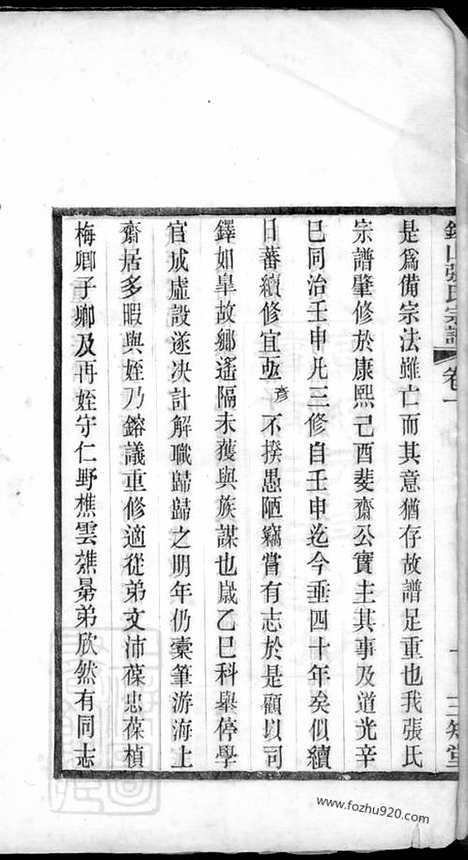 張氏宗譜 卷一
是爲備宗法雖亡而其意猶存故譜是重也我張氏
宗譜肇修於康熙己酉斐齋公實主其事及道光辛
巳同治壬申凡三修自壬申迄今垂四十年矣似續
日蕃續修宜亟彥不揆愚陋竊嘗有志於是顧以司
鐸如臯故鄉遙隔未獲與族謀也歲乙巳科舉停學
官成虛設遂决計解職歸歸之明年仍橐筆游海上
齋居多暇與姪乃鎔議重修適從弟文沛葆忠葆楨
梅卿子卿及再姪守仁野樵雲樵勗弟欣然有同志
www.fozhu920.com